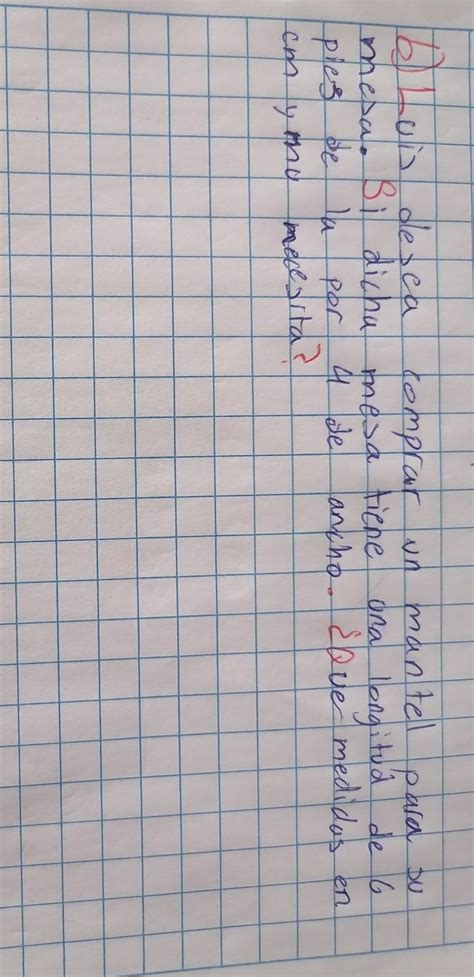 b) Luis desea comprar un mantel para su
mesa. Si dicha mesa tiene una longitud de 6
pies de la por 4 de ancho. ¿Que medidas en
cm y mo necesita?